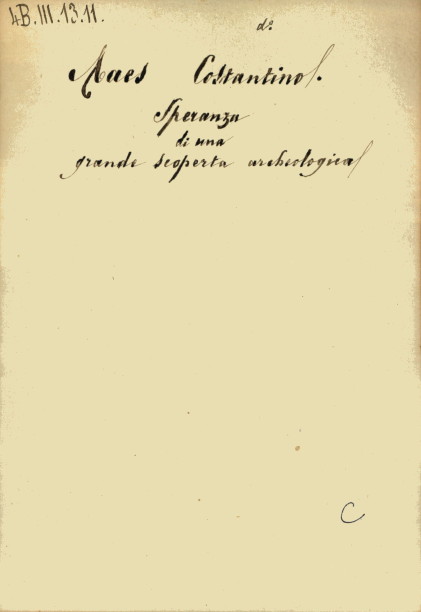 4B.III.13.11.
do.
Maes Costantino.
Speranza
di una
grande scoperta archeologica
C